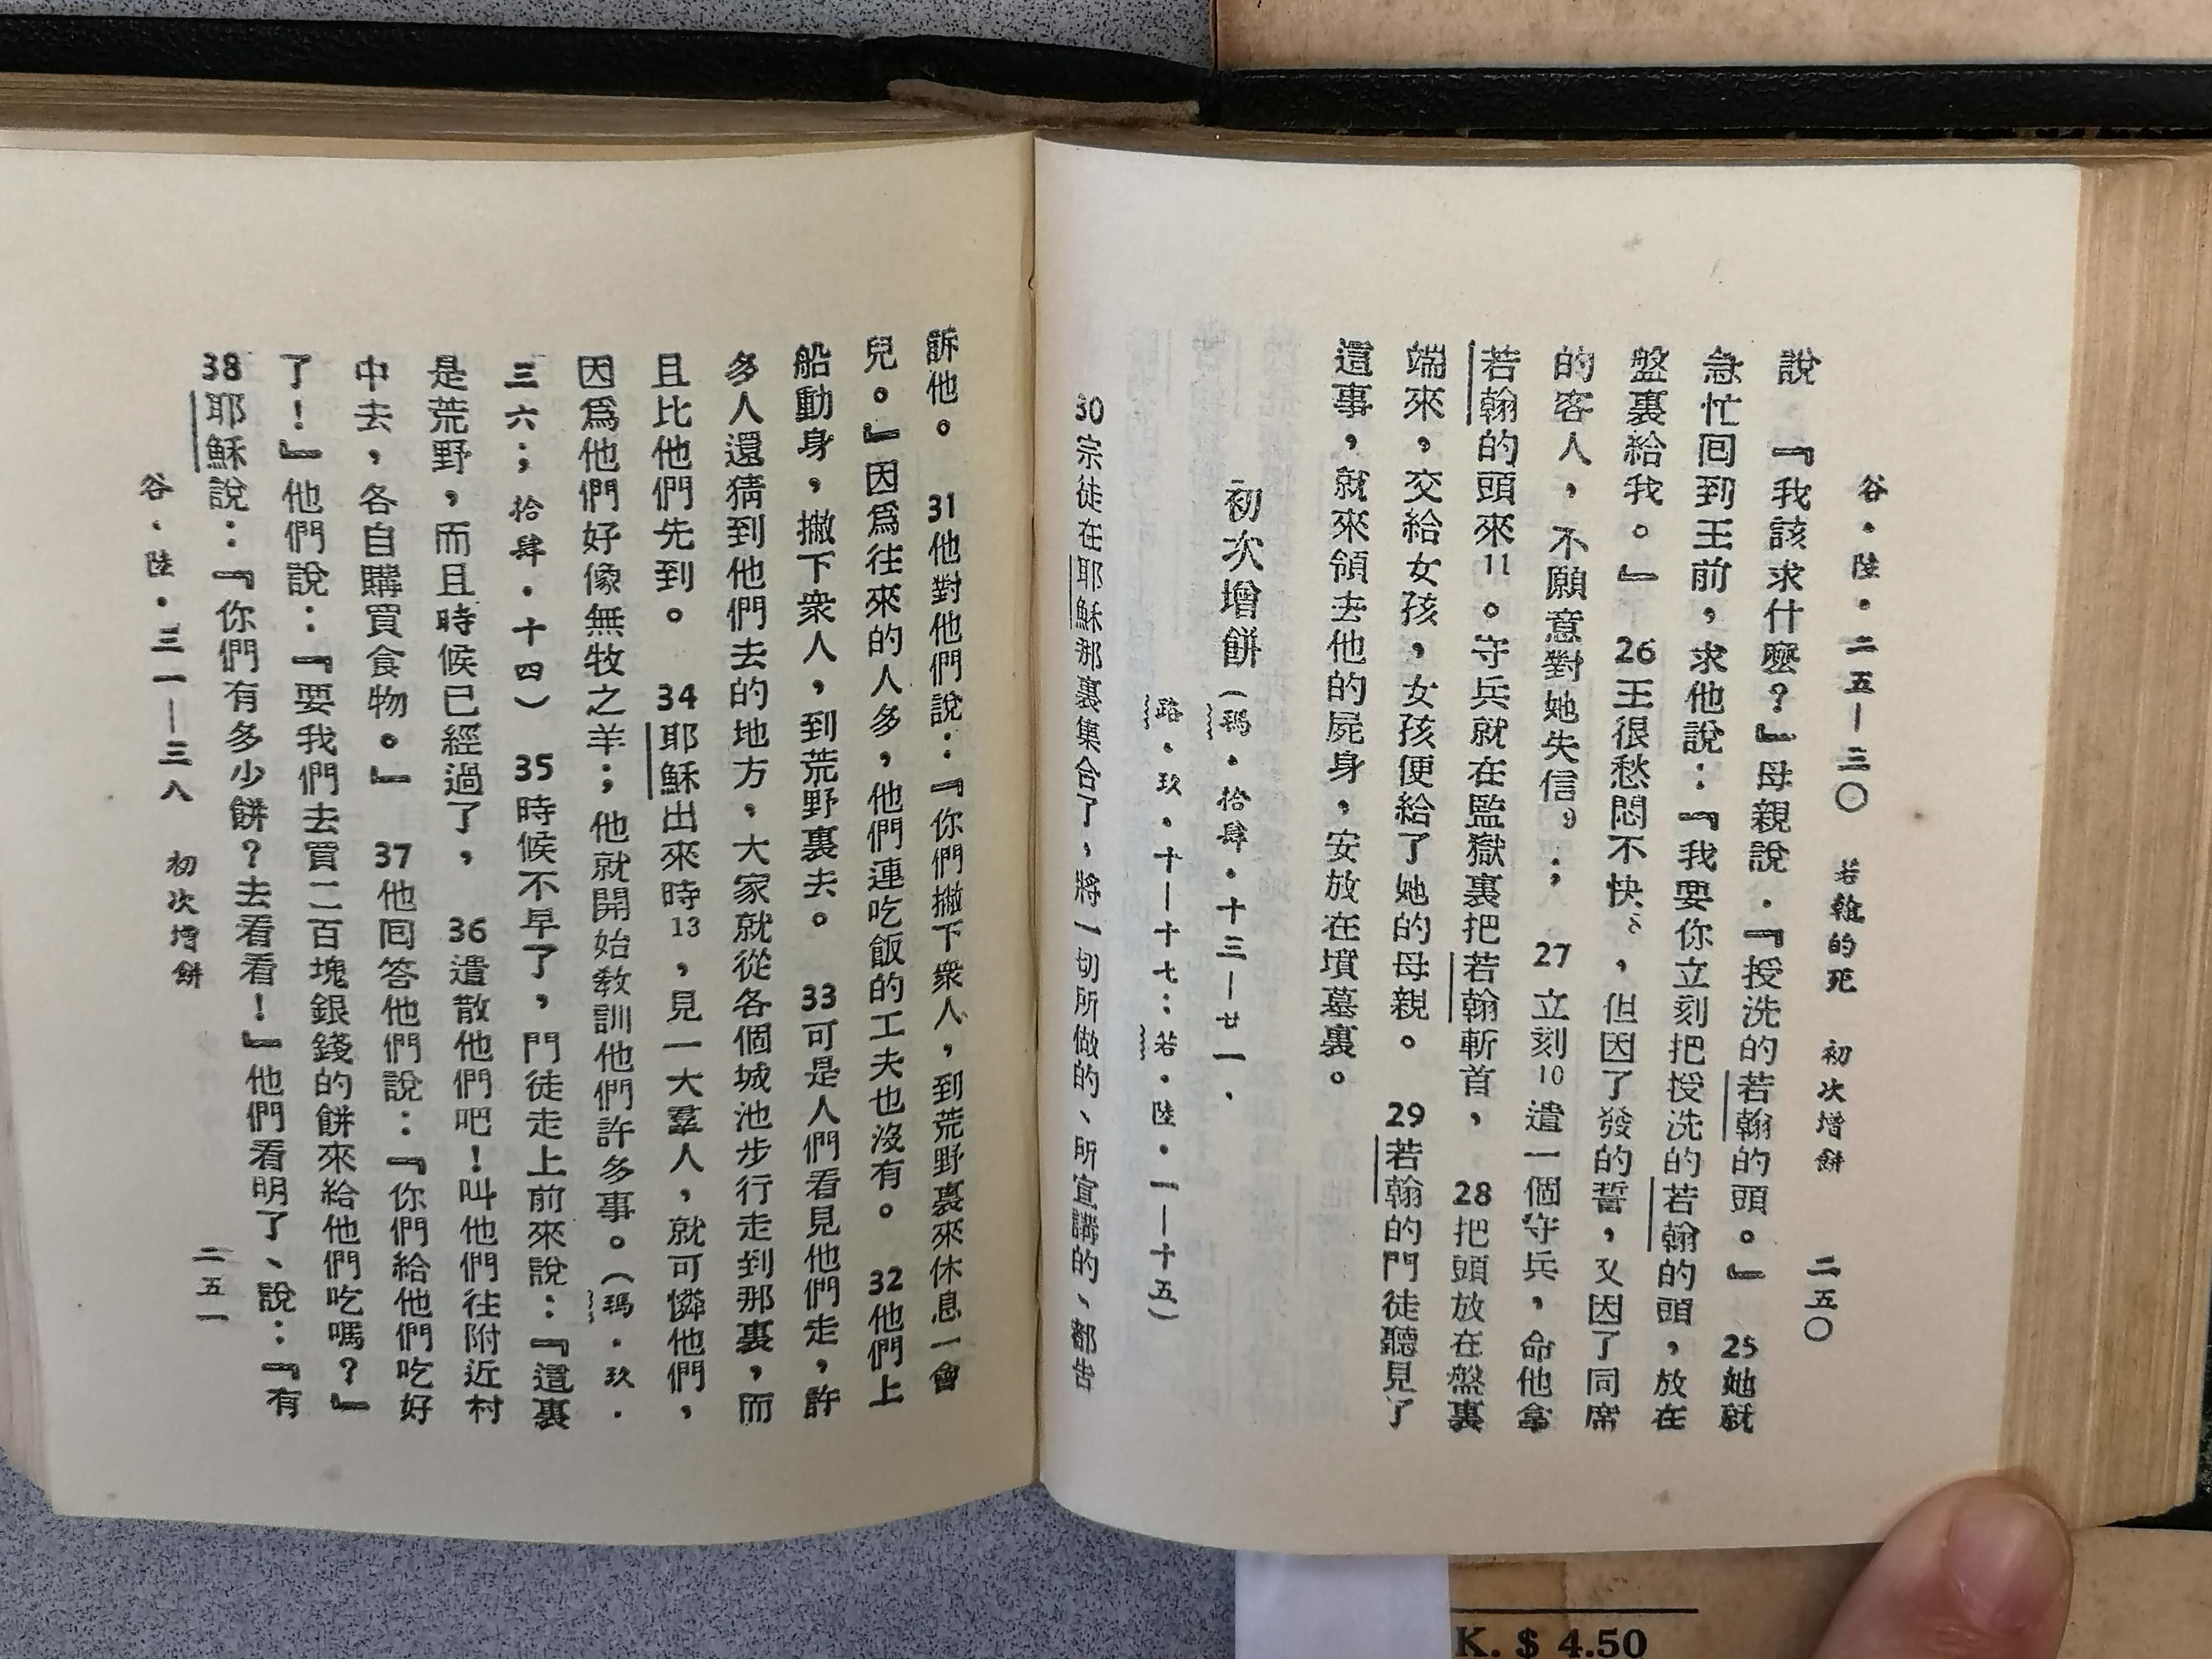 谷．陸．二五—三〇　若翰的死　初次增餅　二五〇
說　『我該求什麼？』母親說．『授洗的若翰的頭。』　25她就
急忙回到王前，求他說：『我要你立刻把授洗的若翰的頭，放在
盤裏給我。』　26王很愁悶不快8，但因了發的誓，又因了同席
的客人，不願意對她失信9；　27立刻10遣一個守兵，命他拿
若翰的頭來11。守兵就在監獄裏把若翰斬首，　28把頭放在盤裏
端來，交給女孩，女孩便給了她的母親。　29若翰的門徒聽見了
這事，就來領去他的屍身，安放在墳墓裏。
初次增餅（瑪．拾肆．十三—廿一．
路．玖．十—十七：若．陸．一—十五）
30宗徒在耶穌那裏集合了，將一切所做的、所宣講的、都告
訴他。　31他對他們說：『你們撇下衆人，到荒野裏來休息一會
兒。』因爲往來的人多，他們連吃飯的工夫也沒有。　32他們上
船動身，撇下衆人，到荒野裏去。　33可是人們看見他們走，許
多人還猜到他們去的地方，大家就從各個城池步行走到那裏，而
且比他們先到。　34耶穌出來時13，見一大羣人，就可憐他們，
因爲他們好像無牧之羊；他就開始教訓他們許多事。（瑪．玖．
三六；拾肆．十四）　35時候不早了，門徒走上前來說：『這裏
是荒野，而且時候已經過了，　36遣散他們吧！叫他們往附近村
中去，各自購買食物。』　37他回答他們說：『你們給他們吃好
了！』他們說：『要我們去買二百塊銀錢的餅來給他們吃嗎？』
38耶穌說：『你們有多少餅？去看看！』他們看明了、說：『有
谷．陸．三一—三八　初次增餅　二五一
K. $ 4.50